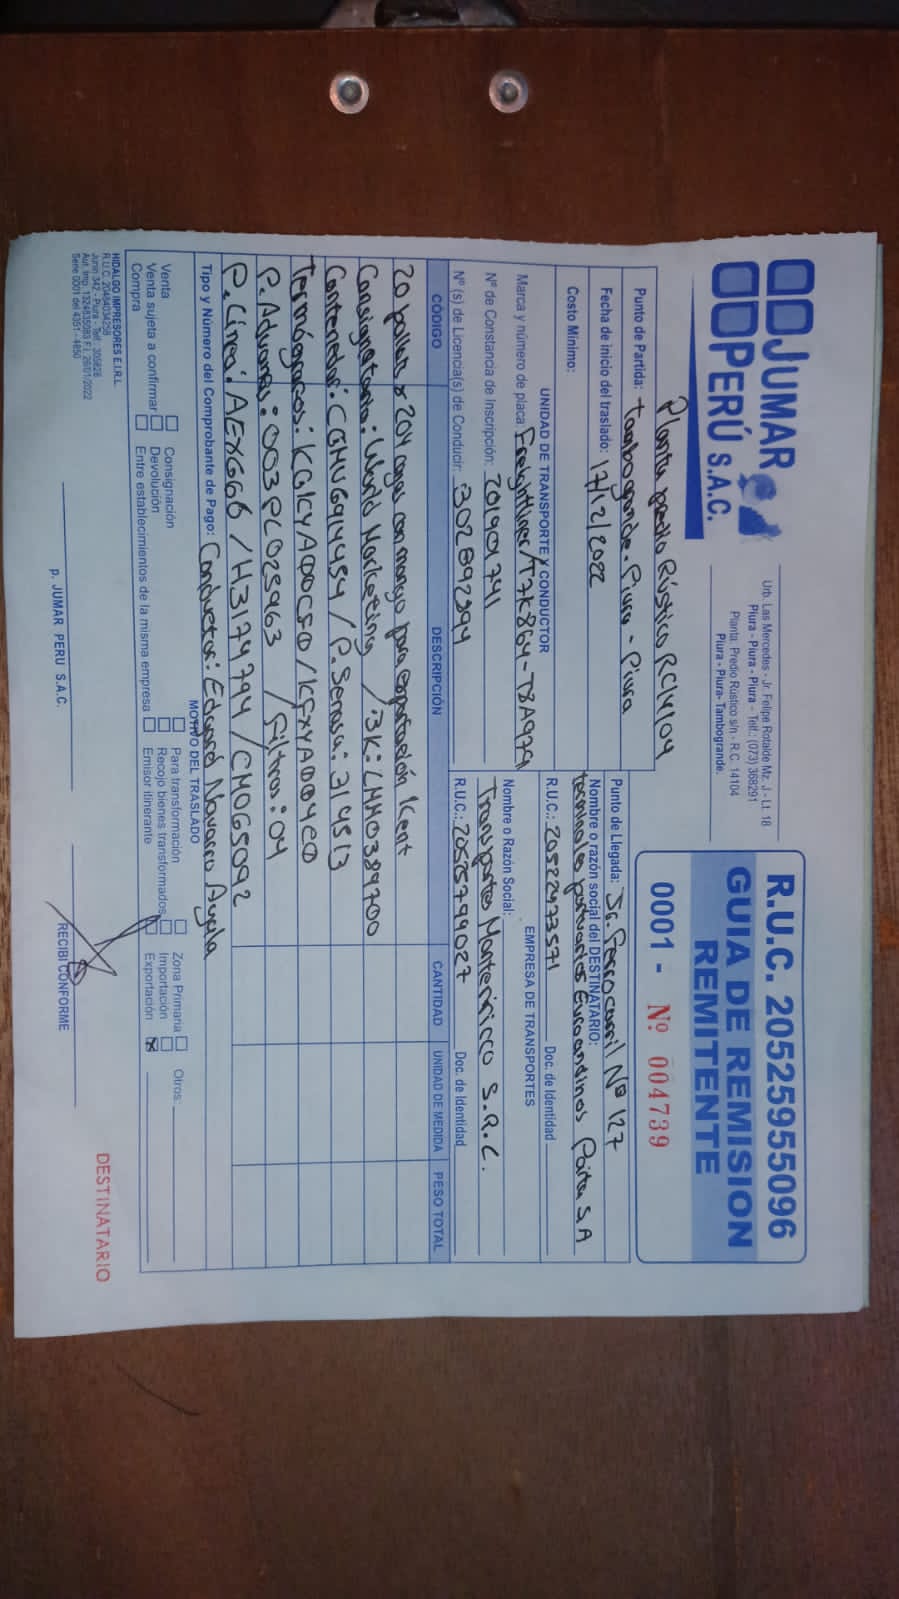 JUMAR
PERÚ S.A.C.
Urb. Las Mercedes - Jr. Felipe Rotalde Mz. J - Lt. 18
Piura - Piura - Piura - Telf.: (073) 368291
Planta: Predio Rústico s/n - R.C. 14104
Piura - Piura- Tambogrande.
R.U.C. 20525955096
GUIA DE REMISION
REMITENTE
0001 - Nº 004739
Planta predio Rústico RC14104
Punto de Partida: tambogrande - Piura - Piura
Fecha de inicio del traslado: 17/12/2022
Costo Mínimo:
Punto de Llegada: Jr. Ferrocarril Nº 127
Nombre o razón social del DESTINATARIO:
terminales portuarios Euroandinos Paita S.A
R.U.C.: 20522473571 Doc. de Identidad
UNIDAD DE TRANSPORTE Y CONDUCTOR
Marca y número de placa: Freightliner/T7K864-T8A979
Nº de Constancia de Inscripción: 201901741
Nº (s) de Licencia(s) de Conducir:
EMPRESA DE TRANSPORTES
Nombre o Razón Social:
Transportes Montericco S.R.L.
R.U.C.: 20525799027 Doc. de Identidad
CÓDIGO DESCRIPCIÓN CANTIDAD UNIDAD DE MEDIDA PESO TOTAL
20 pallet x 204 cajas con mango para exportación Kent
Consignatario: World Marketing / BK: LMM0389700
Contenedor: CGMU6914454 / P. Senasa: 314513
Termógrafos:
P. Aduanas: 003PL025963 / filtros: 04
P. Línea: AEX6666 / H3179794 / CM065092
Tipo y Número del Comprobante de Pago: Conductor: Eduard Navarro Ayala
MOTIVO DEL TRASLADO
Venta
Venta sujeta a confirmar
Compra
Consignación
Devolución
Entre establecimientos de la misma empresa
Para transformación
Recojo bienes transformados
Emisor itinerante
Zona Primaria
Importación
Exportación X
Otros:
HIDALGO IMPRESORES E.I.R.L.
R.U.C. 20484034258
Junín 342 - Piura - Telf.: 305826
Aut. Imp. 1324835083 F.I. 26/01/2022
Serie 0001 del 4351 - 4850
p. JUMAR PERU S.A.C.
RECIBI CONFORME
DESTINATARIO